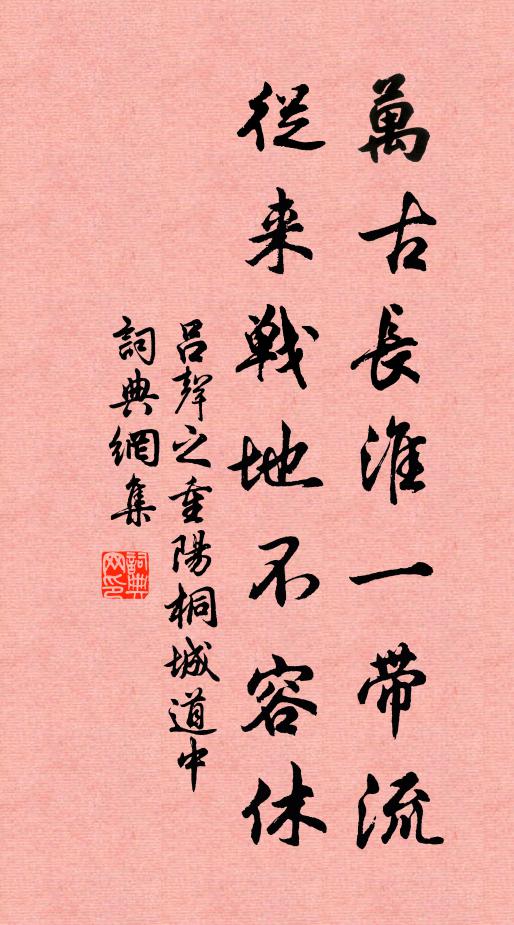 萬古長淮一帶流
從来戰地不容休
呂聲之重陽桐城道中
詞典網集
詞典网印